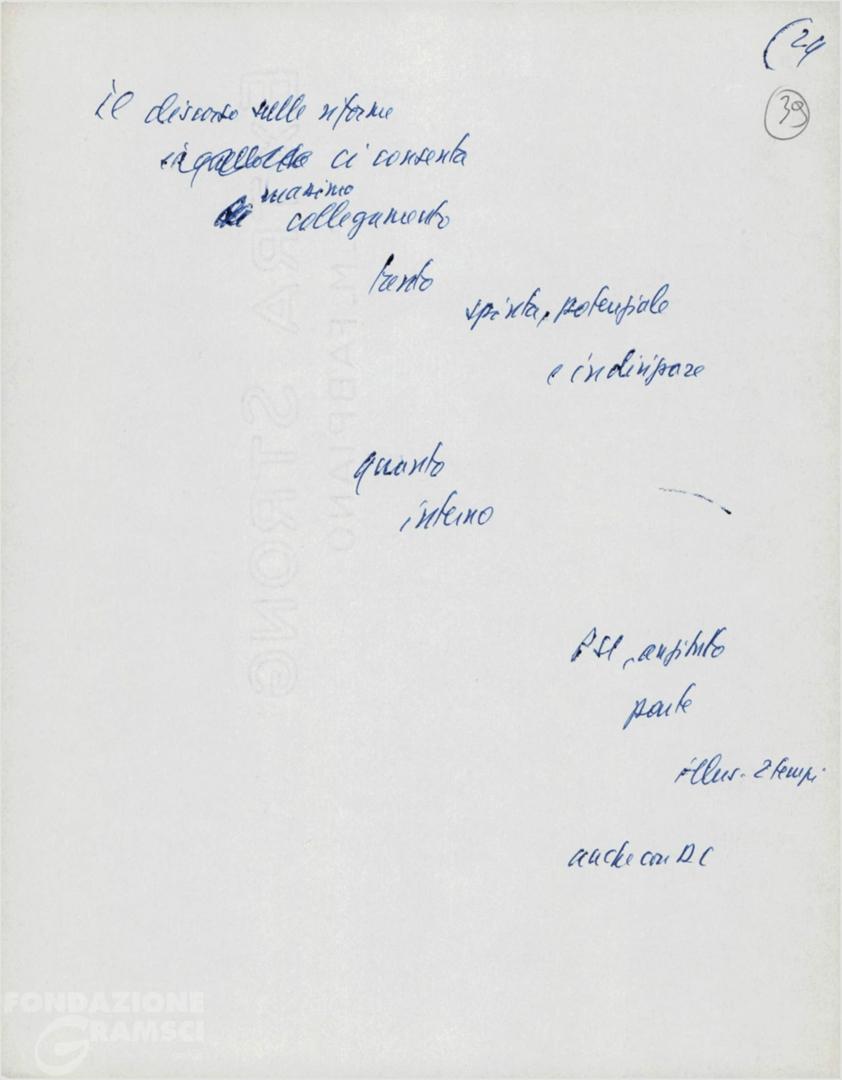 (24
39
il discorso sulle riforme
ci consenta
massimo
collegamento
tanto
spinta, potenziale
e indirizzare
quanto
interno
PSI, anzitutto
parte
illus. 2 tempi
anche con DC
EXTRA STRONG
FABRIANO
FONDAZIONE
GRAMSCI